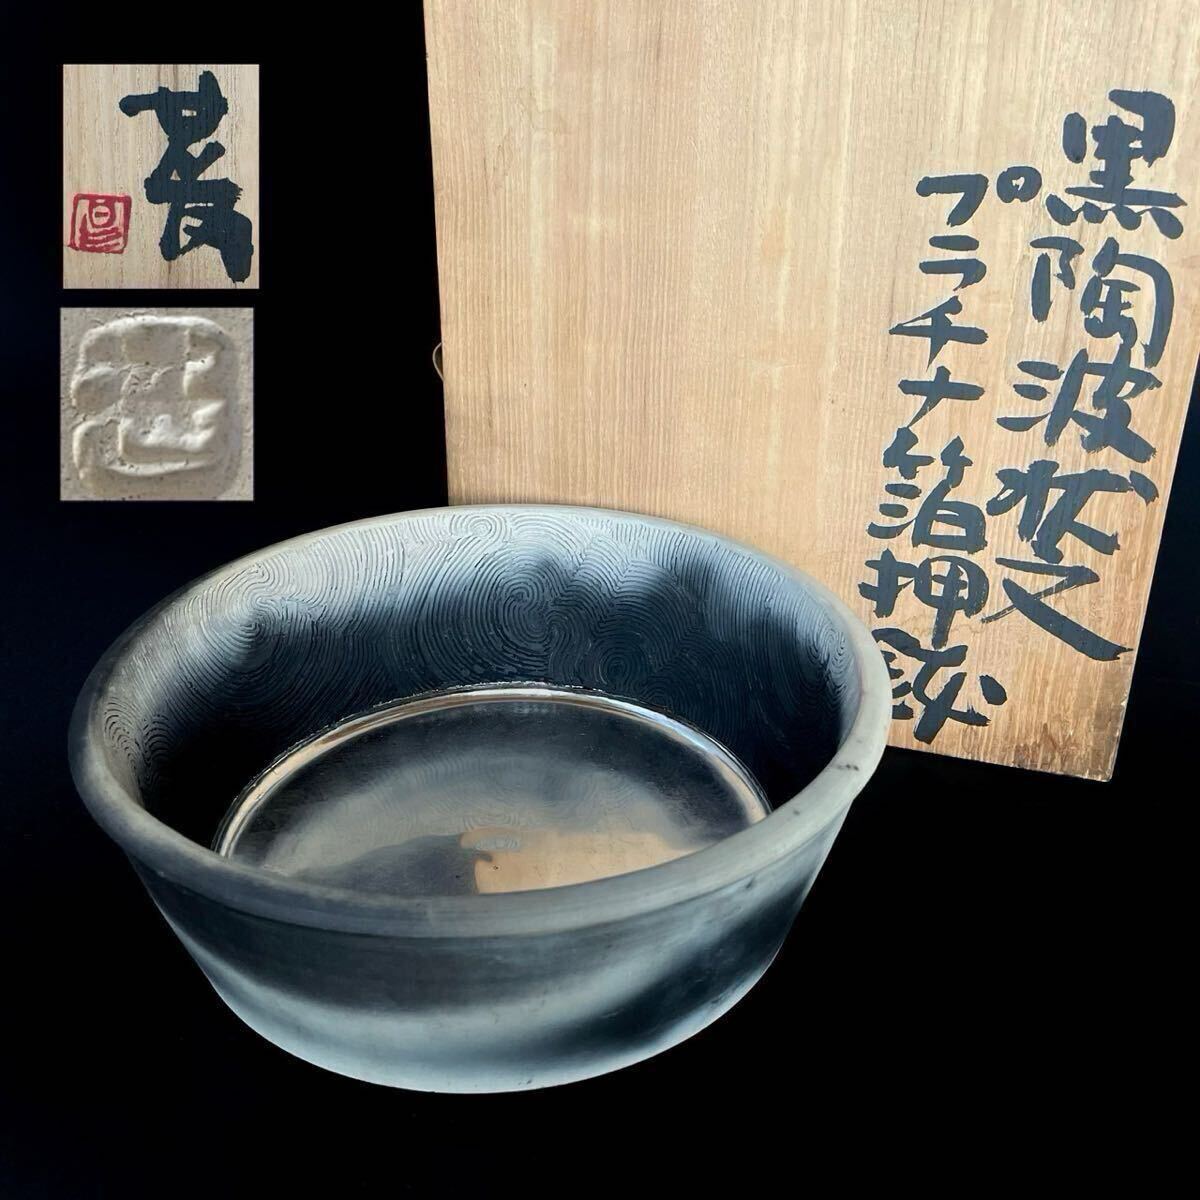 黒陶波状文
プラチナ箔押鉢